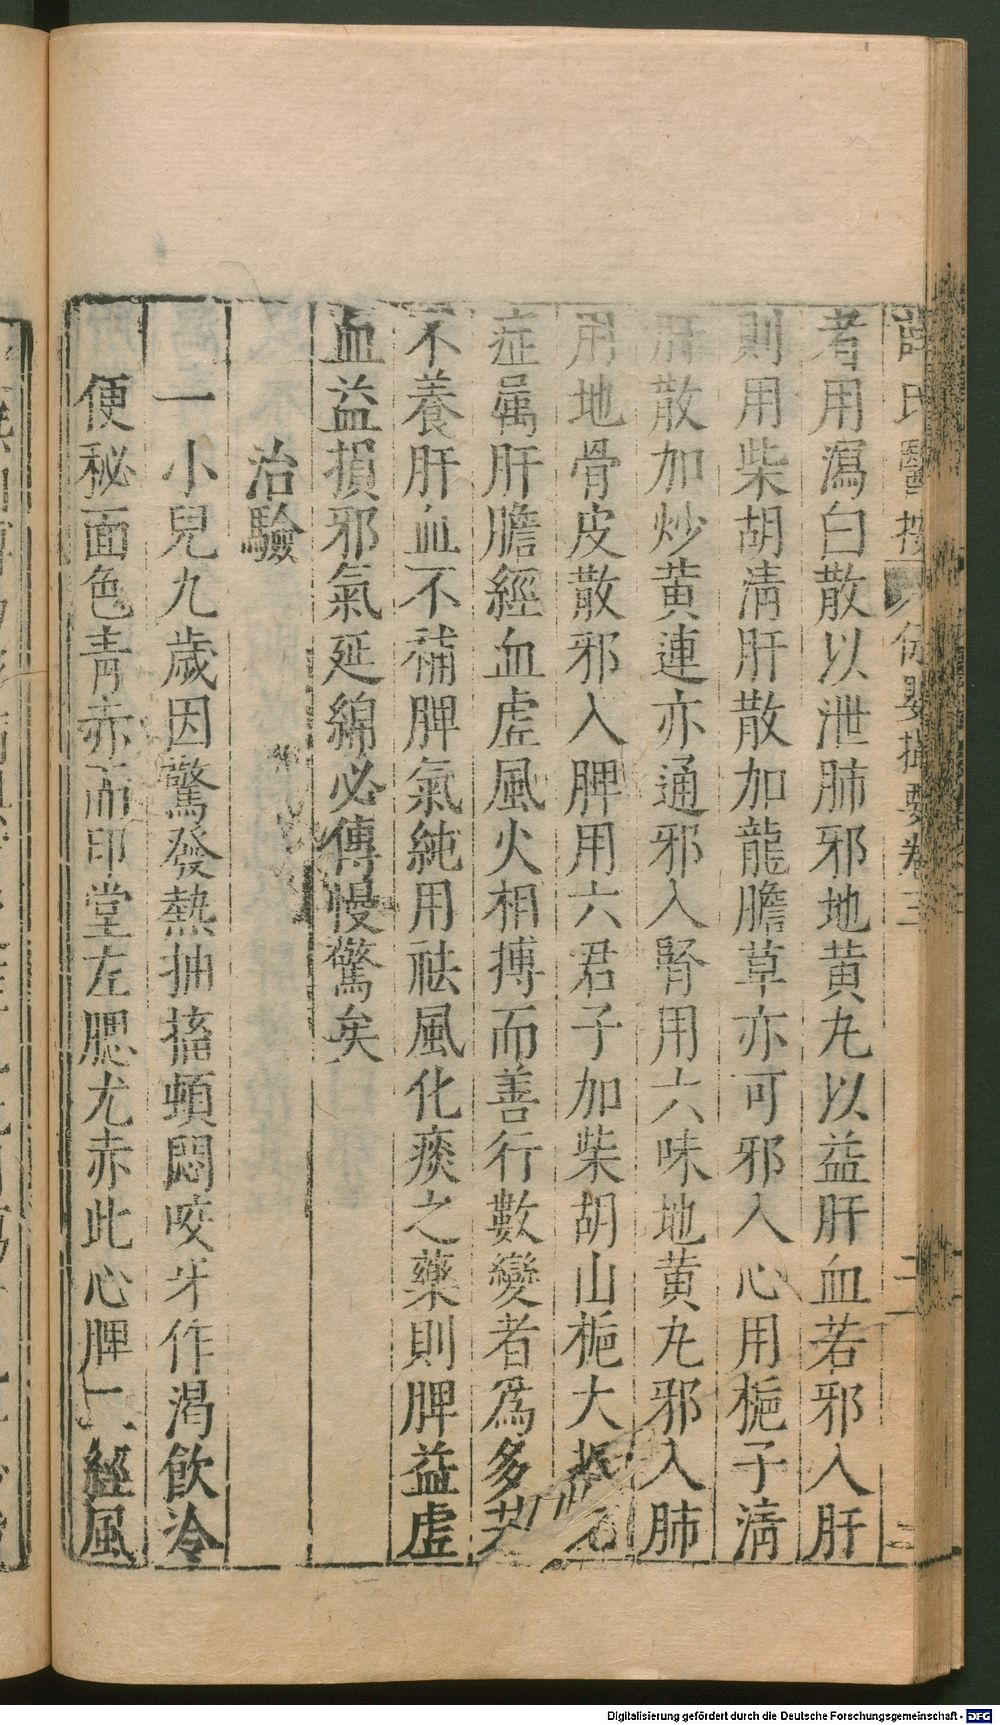 薛氏醫按 保嬰撮要卷三 二
者用瀉白散以泄肺邪地黄丸以益肝血若邪入肝
則用柴胡淸肝散加龍膽草亦可邪入心用梔子淸
肝散加炒黄連亦通邪入腎用六味地黄丸邪入肺
用地骨皮散邪入脾用六君子加柴胡山梔大
症屬肝膽經血虛風火相搏而善行數變者爲多若
不養肝血不補脾氣純用祛風化痰之藥則脾益虛
血益損邪氣延綿必傳慢驚矣
治驗
一小兒九歲因驚發熱抽搐頓悶咬牙作渴飲冷
便秘面色青赤而印堂左腮尤赤此心脾二經風
Digitalisierung gefördert durch die Deutsche Forschungsgemeinschaft - DFG